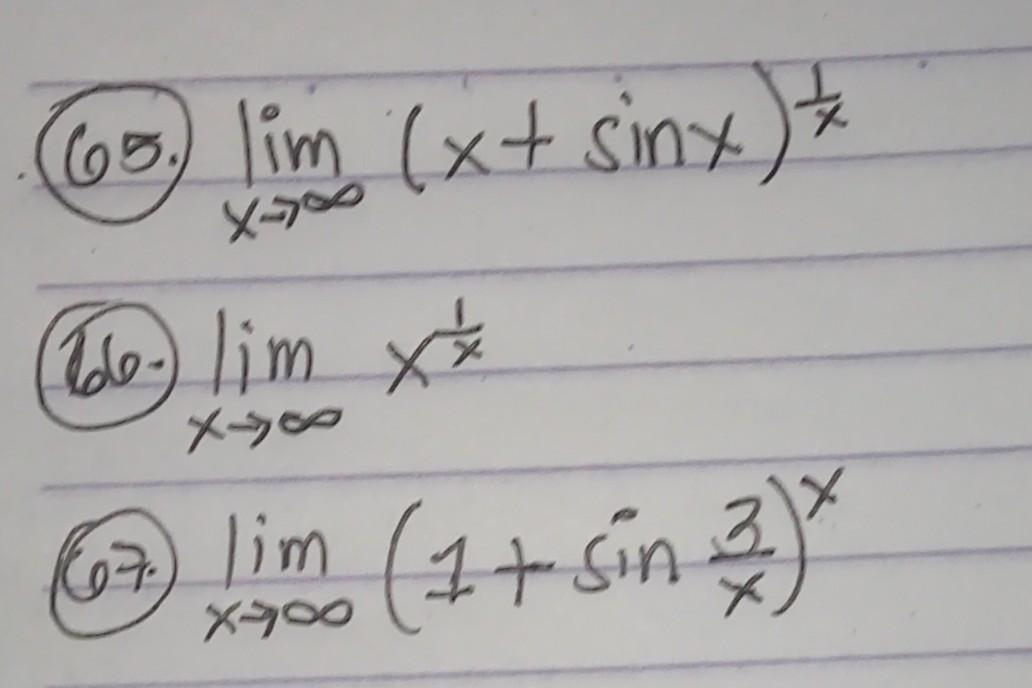 65. lim x→∞ (x + sinx)^(1/x)
66. lim x→∞ x^(1/x)
67. lim x→∞ (1 + sin 3/x)^x